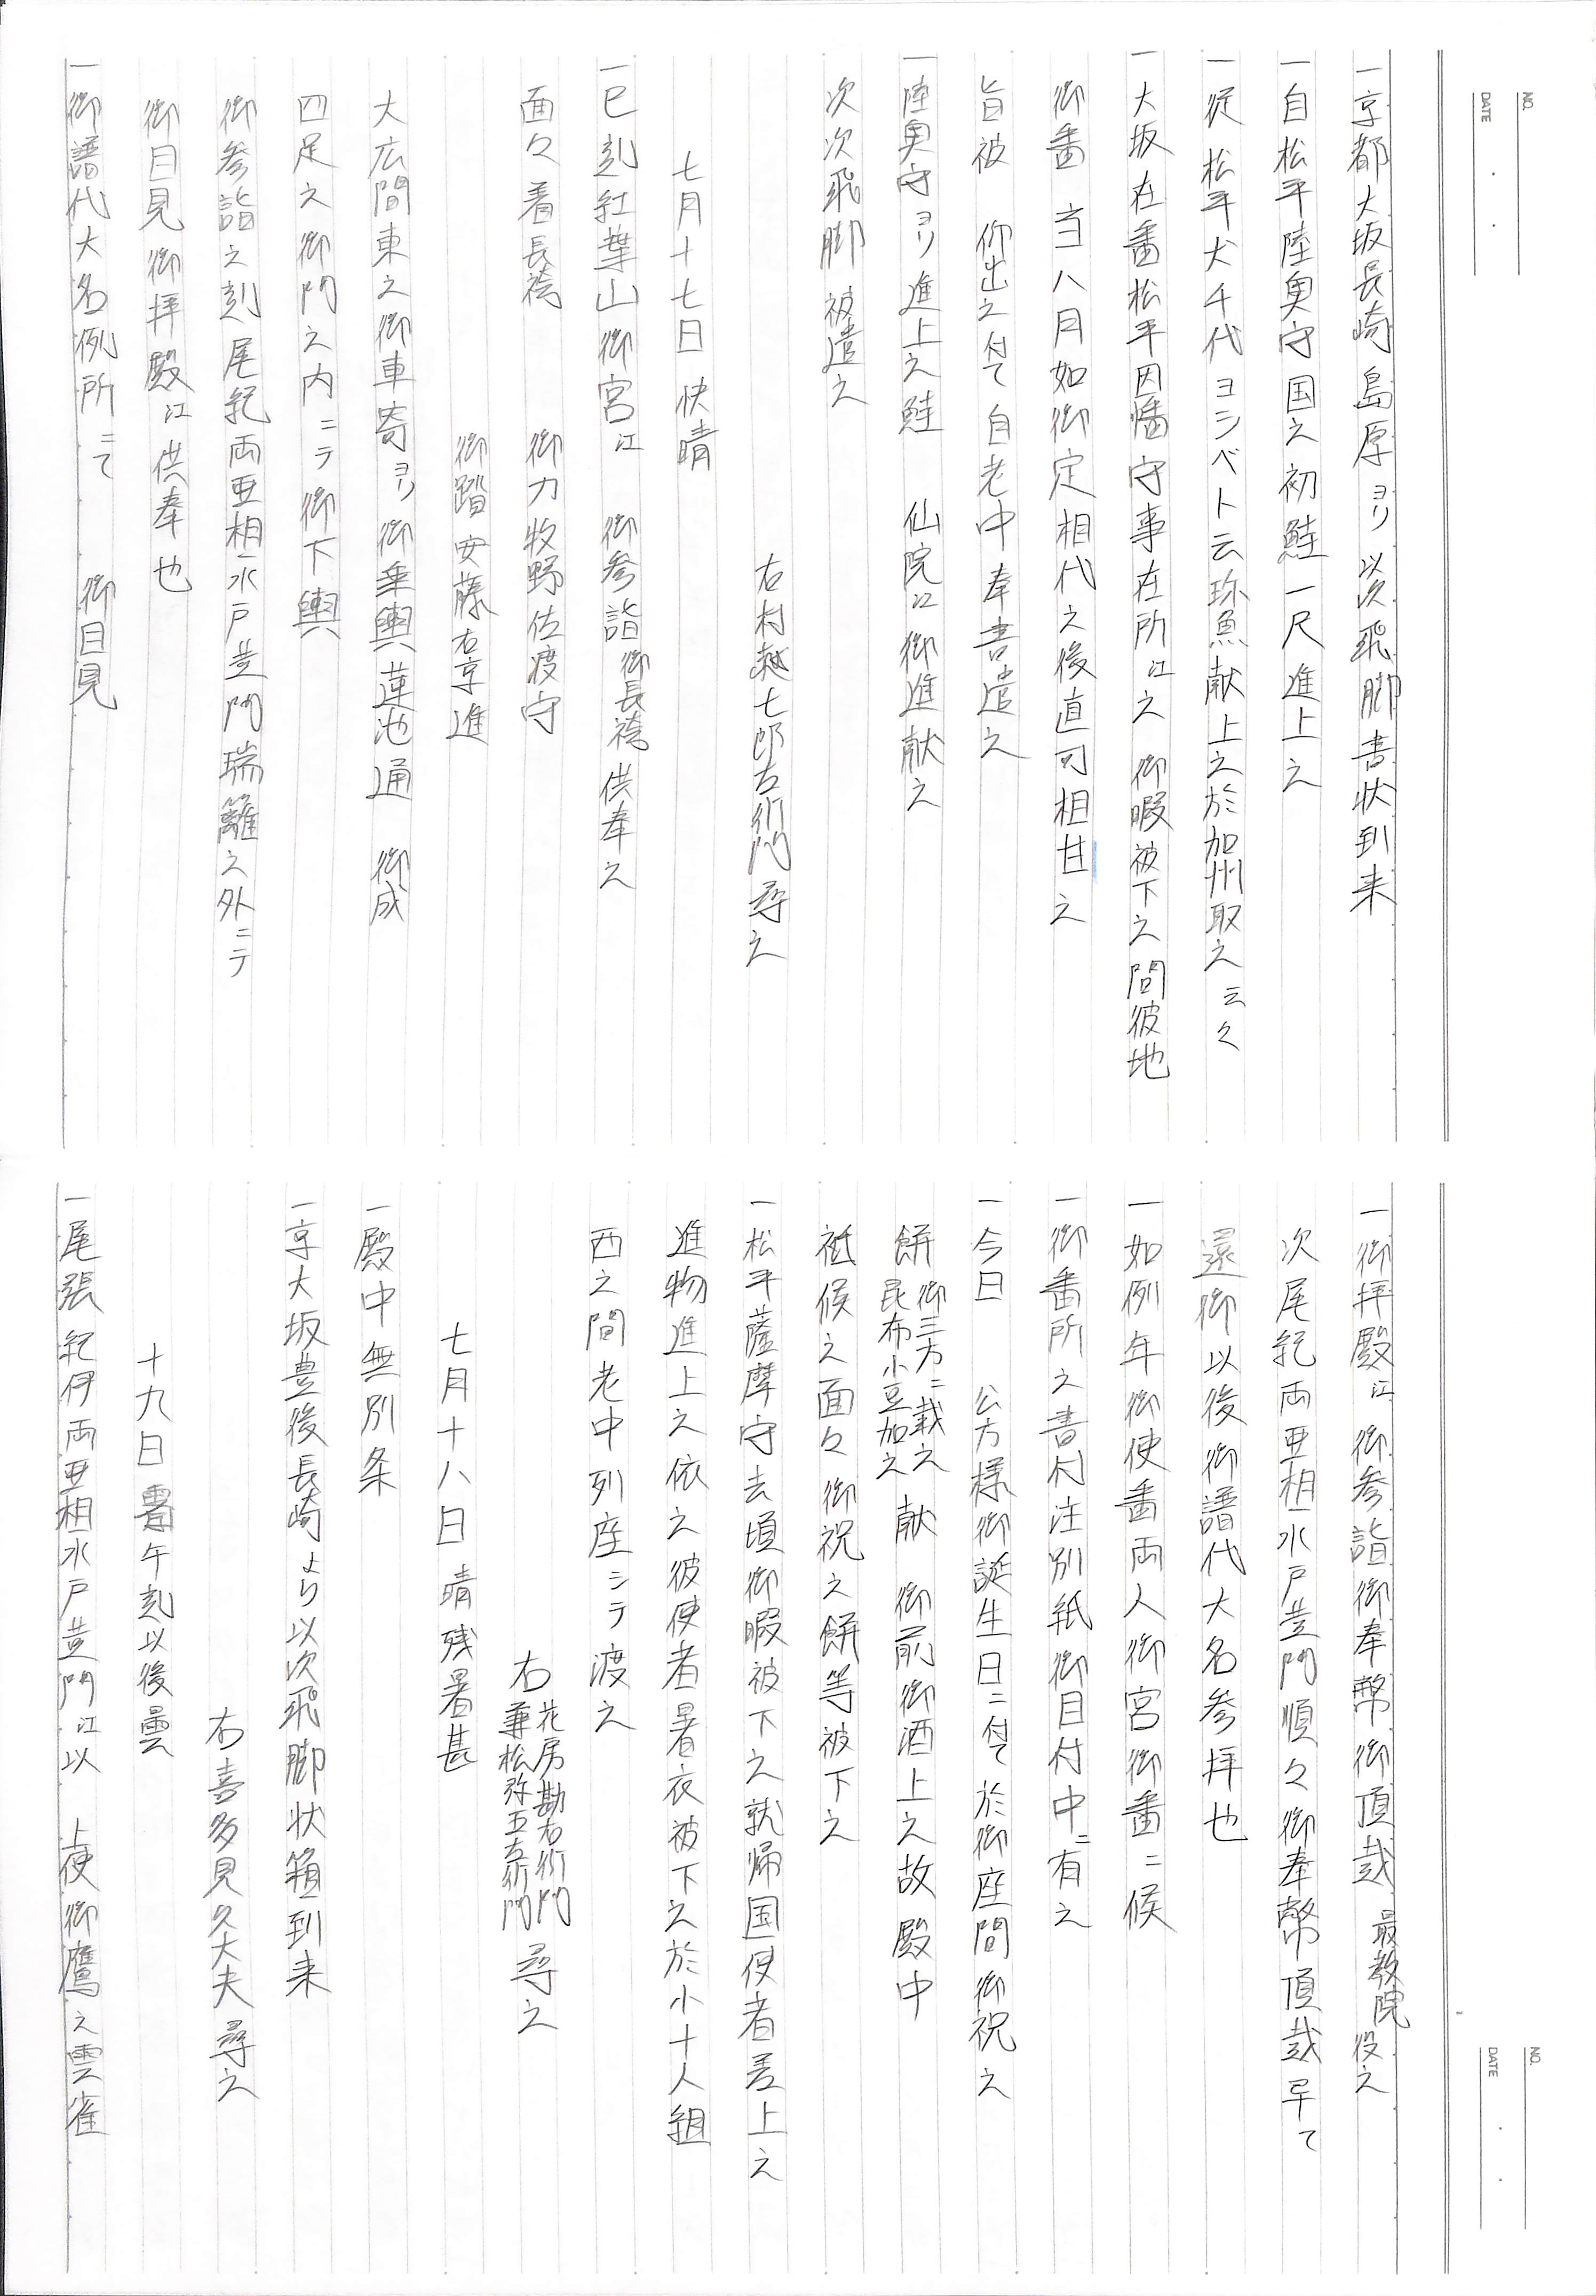 NO.
DATE
一京都大坂長崎島原ヨリ以次飛脚書状到来
一自松平陸奥守国之初鮭一尺進上之
一従松平犬千代ヨシベト云珎魚献上之於加州取之云々
一大坂在番松平因幡守事在所江之御暇被下之間彼地
御番当八月如御定相代之後直可相廿之
旨被 仰出之付て自老中奉書遣之
一陸奥守ヨリ進上之鮭 仙院江御進献之
次次飛脚被遣之
右村越七郎左衛門尋之
七月十七日 快晴
一巳刻紅葉山御宮江 御参詣御長袴供奉之
面々着長袴 御刀牧野佐渡守
御踏安藤右京進
大広間東之御車寄ヨリ御乗輿蓮池通 御成
四足之御門之内ニテ御下輿
御参詣之刻尾紀両亜相水戸並門瑞籬之外ニテ
御目見御拝殿江供奉也
一御譜代大名例所ニて 御目見
NO.
DATE
一御拝殿江御参詣御奉幣御頂戴 最教院役之
次尾紀両亜相水戸並門順々御奉幣頂戴早て
還御以後御譜代大名参拝也
一如例年御使番両人御宮御番ニ候
一御番所之書付注別紙御目付中ニ有之
一今日 公方様御誕生日ニ付て於御座間御祝之
餅御三方ニ載之昆布小豆加之献 御前御酒上之故殿中
祗候之面々御祝之餅等被下之
一松平薩摩守去頃御暇被下之就帰国使者差上之
進物進上之依之彼使者暑衣被下之於小十人組
西之間老中列座シテ渡之
右花房勘右衛門兼松弥五左衛門尋之
七月十八日 晴残暑甚
一殿中無別条
一京大坂豊後長崎より以次飛脚状箱到来
右喜多見久大夫尋之
十九日 曇午刻以後曇
一尾張紀伊両亜相水戸並門江以 上使御鷹之雲雀